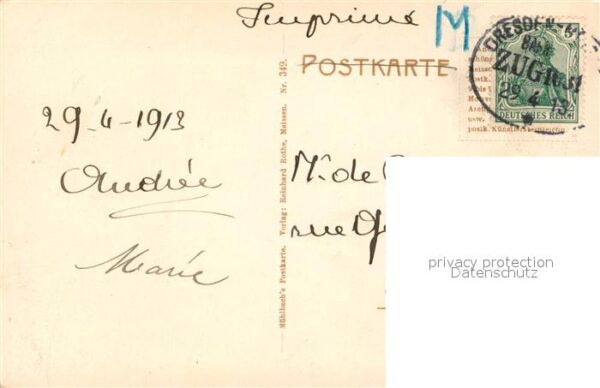 Imprimé
M
POSTKARTE
DRESDEN-
Bhp
ZUG
29 4 13
DEUTSCHES REICH
postk. Künstlersteinzeichn
29-4-1913
Andrée
Marie
Mühlbach's Postkarte. Verlag: Reinhard Rothe, Meissen. Nr. 349.
Mr. de
rue
privacy protection
Datenschutz